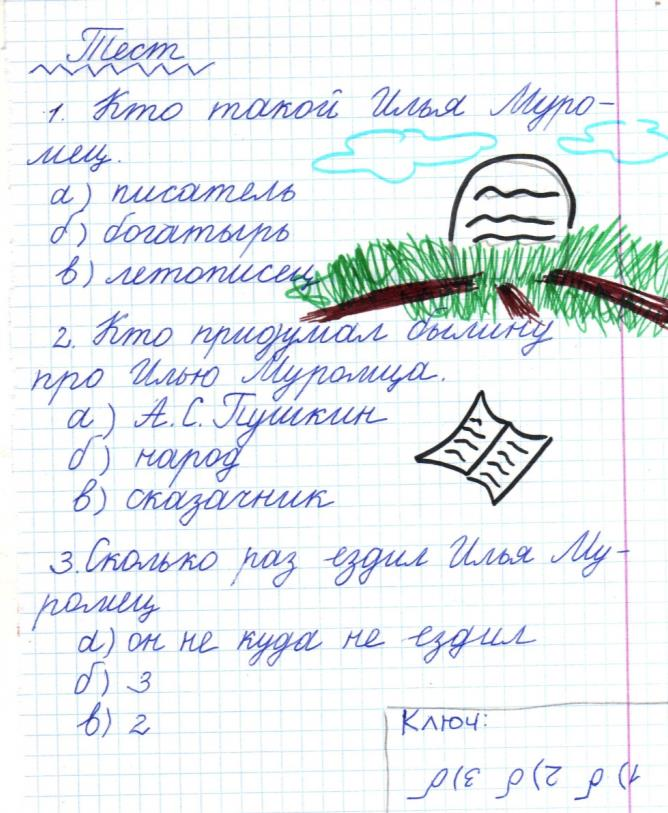 Тест
1. Кто такой Илья Муро-
мец.
а) писатель
б) богатырь
в) летописец
2. Кто придумал былину
про Илью Муромца.
а) А.С. Пушкин
б) народ
в) сказачник
3. Сколько раз ездил Илья Му-
ромец
а) он не куда не ездил
б) 3
в) 2
Ключ:
1) б 2) б 3) б